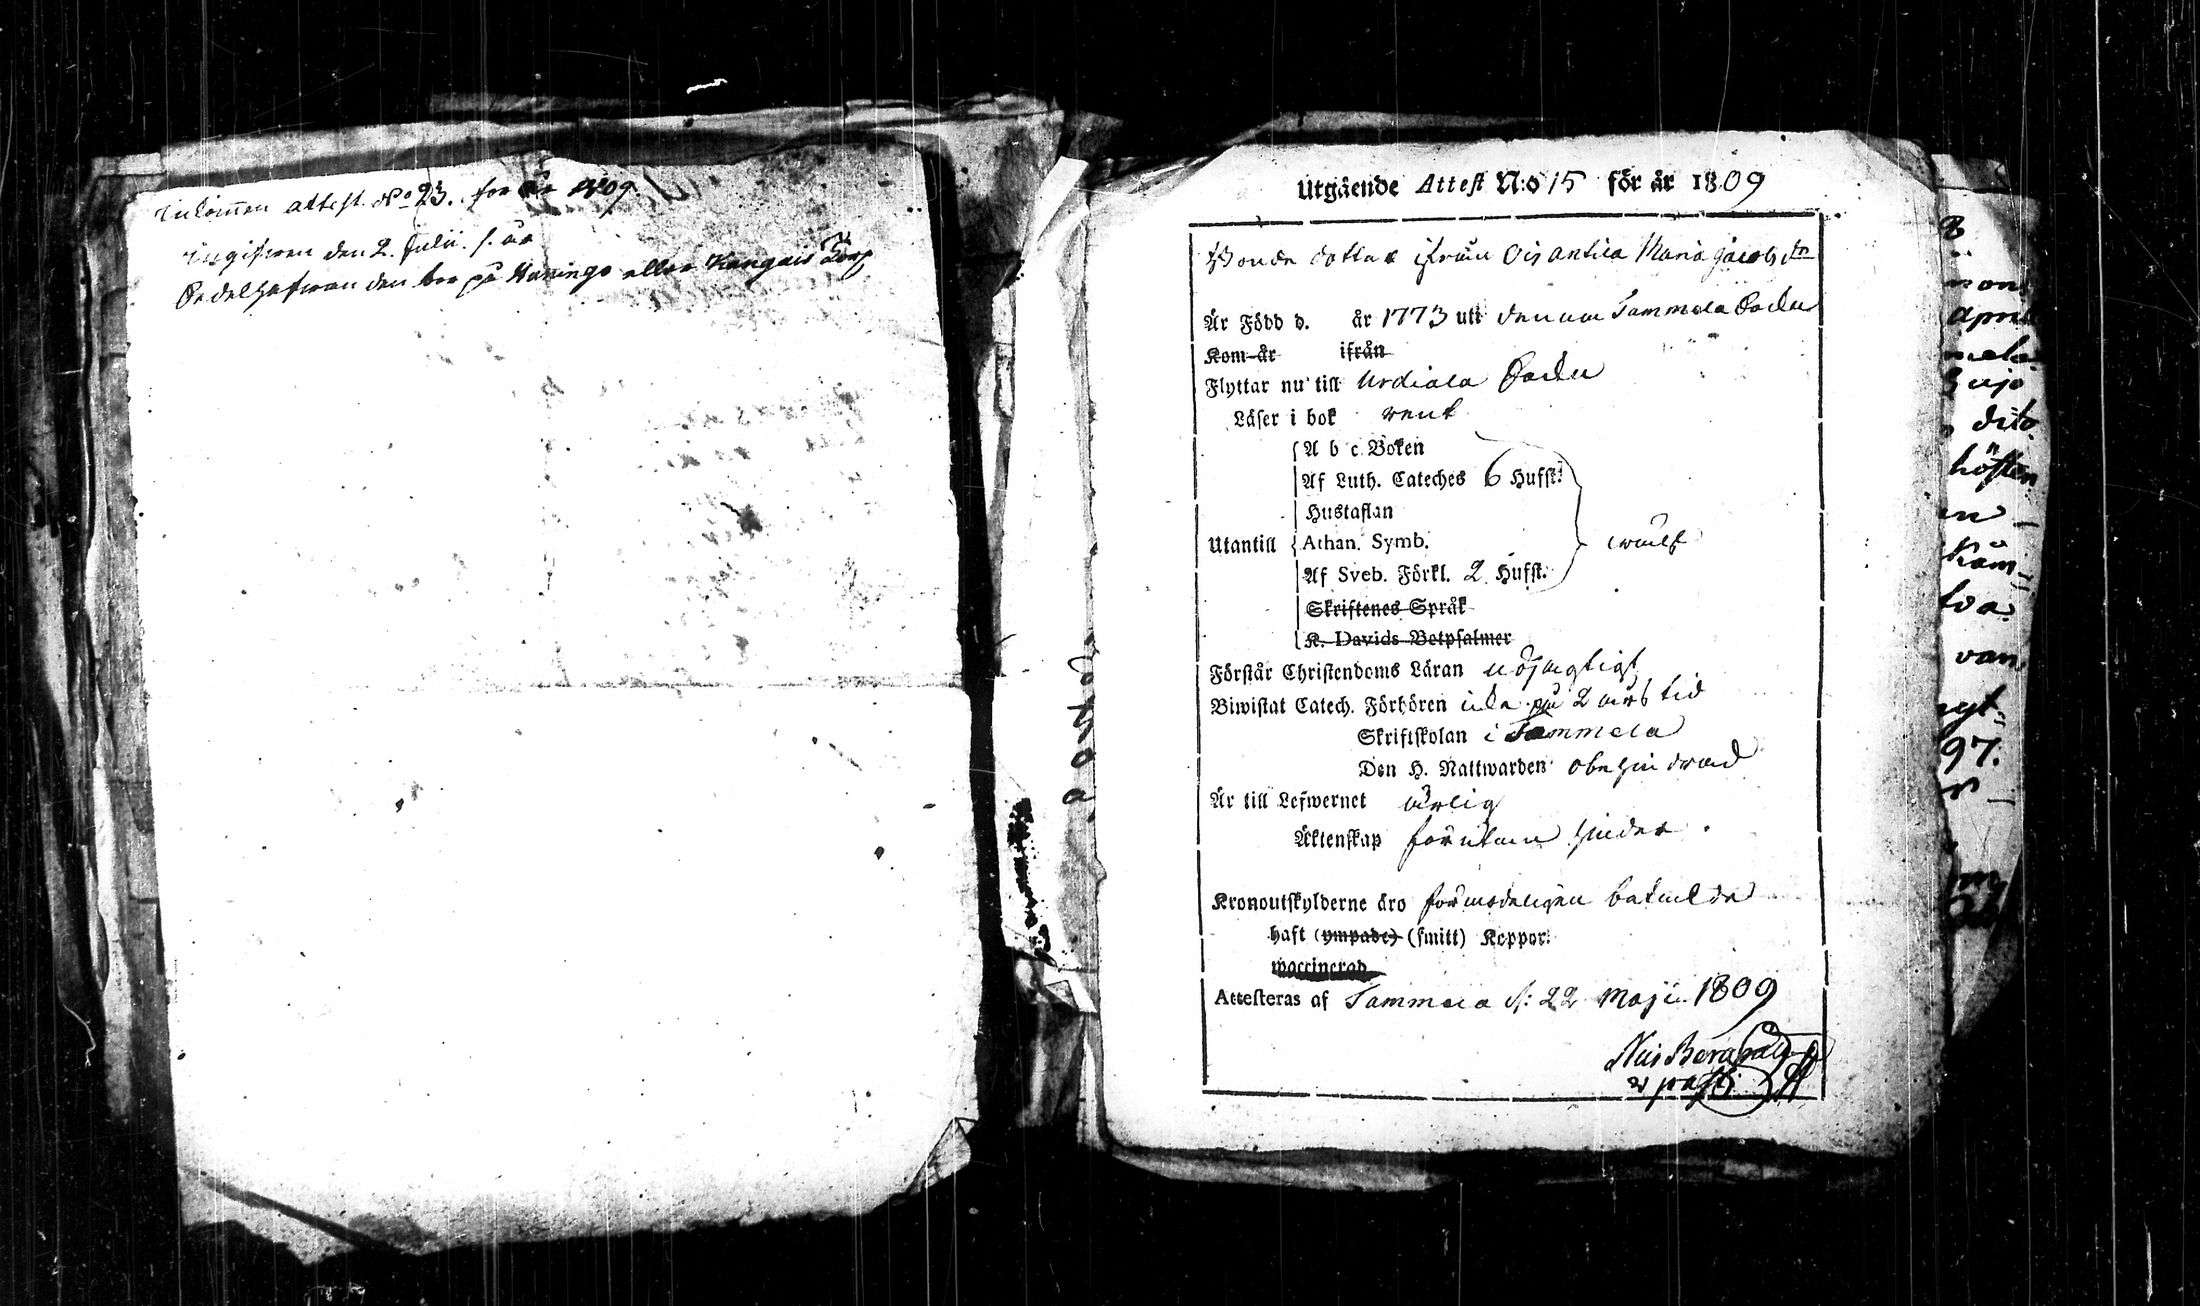 Inkommen attest No 23. för år 1809
ingifven den 2. Julii s. år
Bedelhafvan den bor på Huningo eller Kangais Torp
Utgående Attest N:o 15 för år 1809
Bonde dotter ifrån Maria Jacobs dr
Är Född d. år 1773 uti denna Tammela Socken
Kom år ifrån
Flyttar nu till Urdiala Socken
Läser i bok rent
A b c Boken
Af Luth. Cateches 6 Hufst:
Hustaflan
Utantill Athan. Symb.
Af Sveb. Förkl. 2 Hufst.
Skriftenes Språk
K. Davids Betpsalmer
Förstår Christendoms Läran nöjagtigt
Biwistat Catech. Förhören icke på 2 års tid
Skriftskolan i Tammela
Den H. Nattwarden obehindrad
Är till Lefwernet ärlig
Äktenskap förutan hinder.
Kronoutskylderne äro förmodeligen betalde
haft (ympade) (smitt) Koppor:
waccinerad
Attesteras af Tammela d: 22 Maji 1809
v past:
höften
dito
van
97.